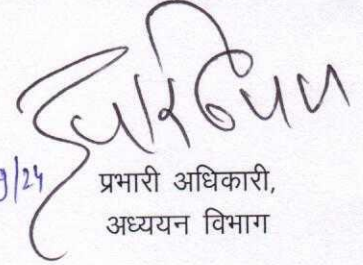 9/24
प्रभारी अधिकारी,
अध्ययन विभाग